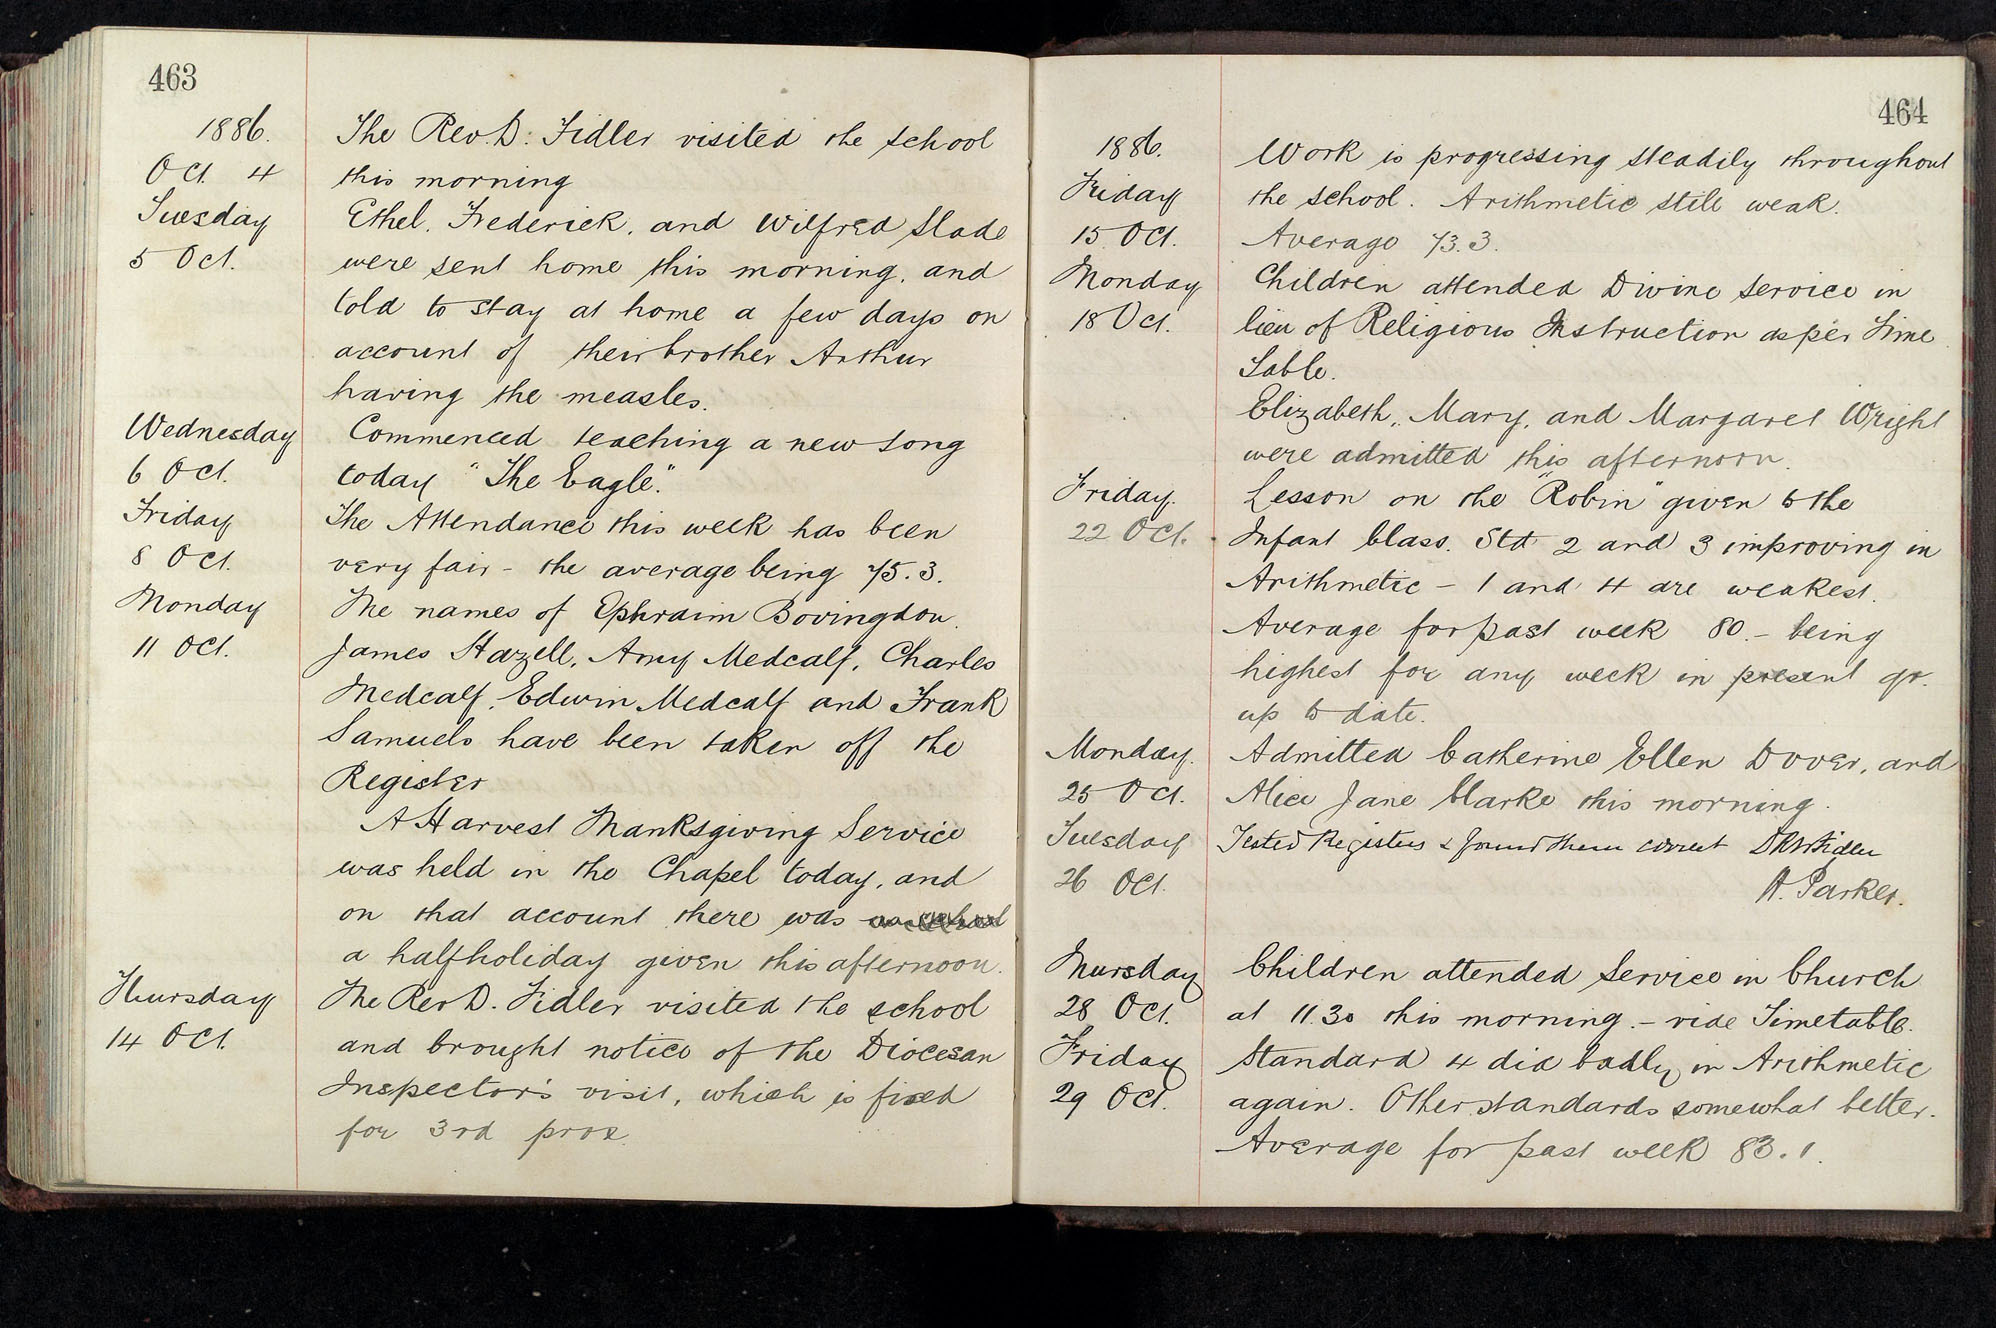 463
1886.
Oct. 4 The Rev. D. Fidler visited the school
this morning
Tuesday Ethel, Frederick, and Wilfred Slade
5 Oct. were sent home this morning, and
told to stay at home a few days on
account of their brother Arthur
having the measles.
Wednesday Commenced teaching a new song
6 Oct. today "The Eagle".
Friday The Attendance this week has been
8 Oct. very fair - the average being 75.3.
Monday The names of Ephraim Bovingdon,
11 Oct. James Hazell, Amy Medcalf, Charles
Medcalf, Edwin Medcalf and Frank
Samuels have been taken off the
Register
A Harvest Thanksgiving Service
was held in the Chapel today, and
on that account there was no school
a halfholiday given this afternoon.
Thursday The Rev D. Fidler visited the school
14 Oct. and brought notice of the Diocesan
Inspector's visit, which is fixed
for 3rd prox.
464
1886. Work is progressing steadily throughout
Friday the school. Arithmetic still weak.
15 Oct. Average 73.3.
Monday Children attended Divine Service in
18 Oct. lieu of Religious Instruction as per Time
Table.
Elizabeth, Mary, and Margaret Wright
were admitted this afternoon.
Friday. Lesson on the "Robin" given to the
22 Oct. Infant Class. Std 2 and 3 improving in
Arithmetic - 1 and 4 are weakest.
Average for past week 80 - being
highest for any week in present qr.
up to date.
Monday. Admitted Catherine Ellen Dover, and
25 Oct. Alice Jane Clarke this morning.
Tuesday Tested Registers & found them correct Fidler
26 Oct. A. Parker.
Thursday Children attended Service in Church
28 Oct. at 11.30 this morning. - vide Timetable.
Friday Standard 4 did badly in Arithmetic
29 Oct. again. Other standards somewhat better.
Average for past week 83.1.